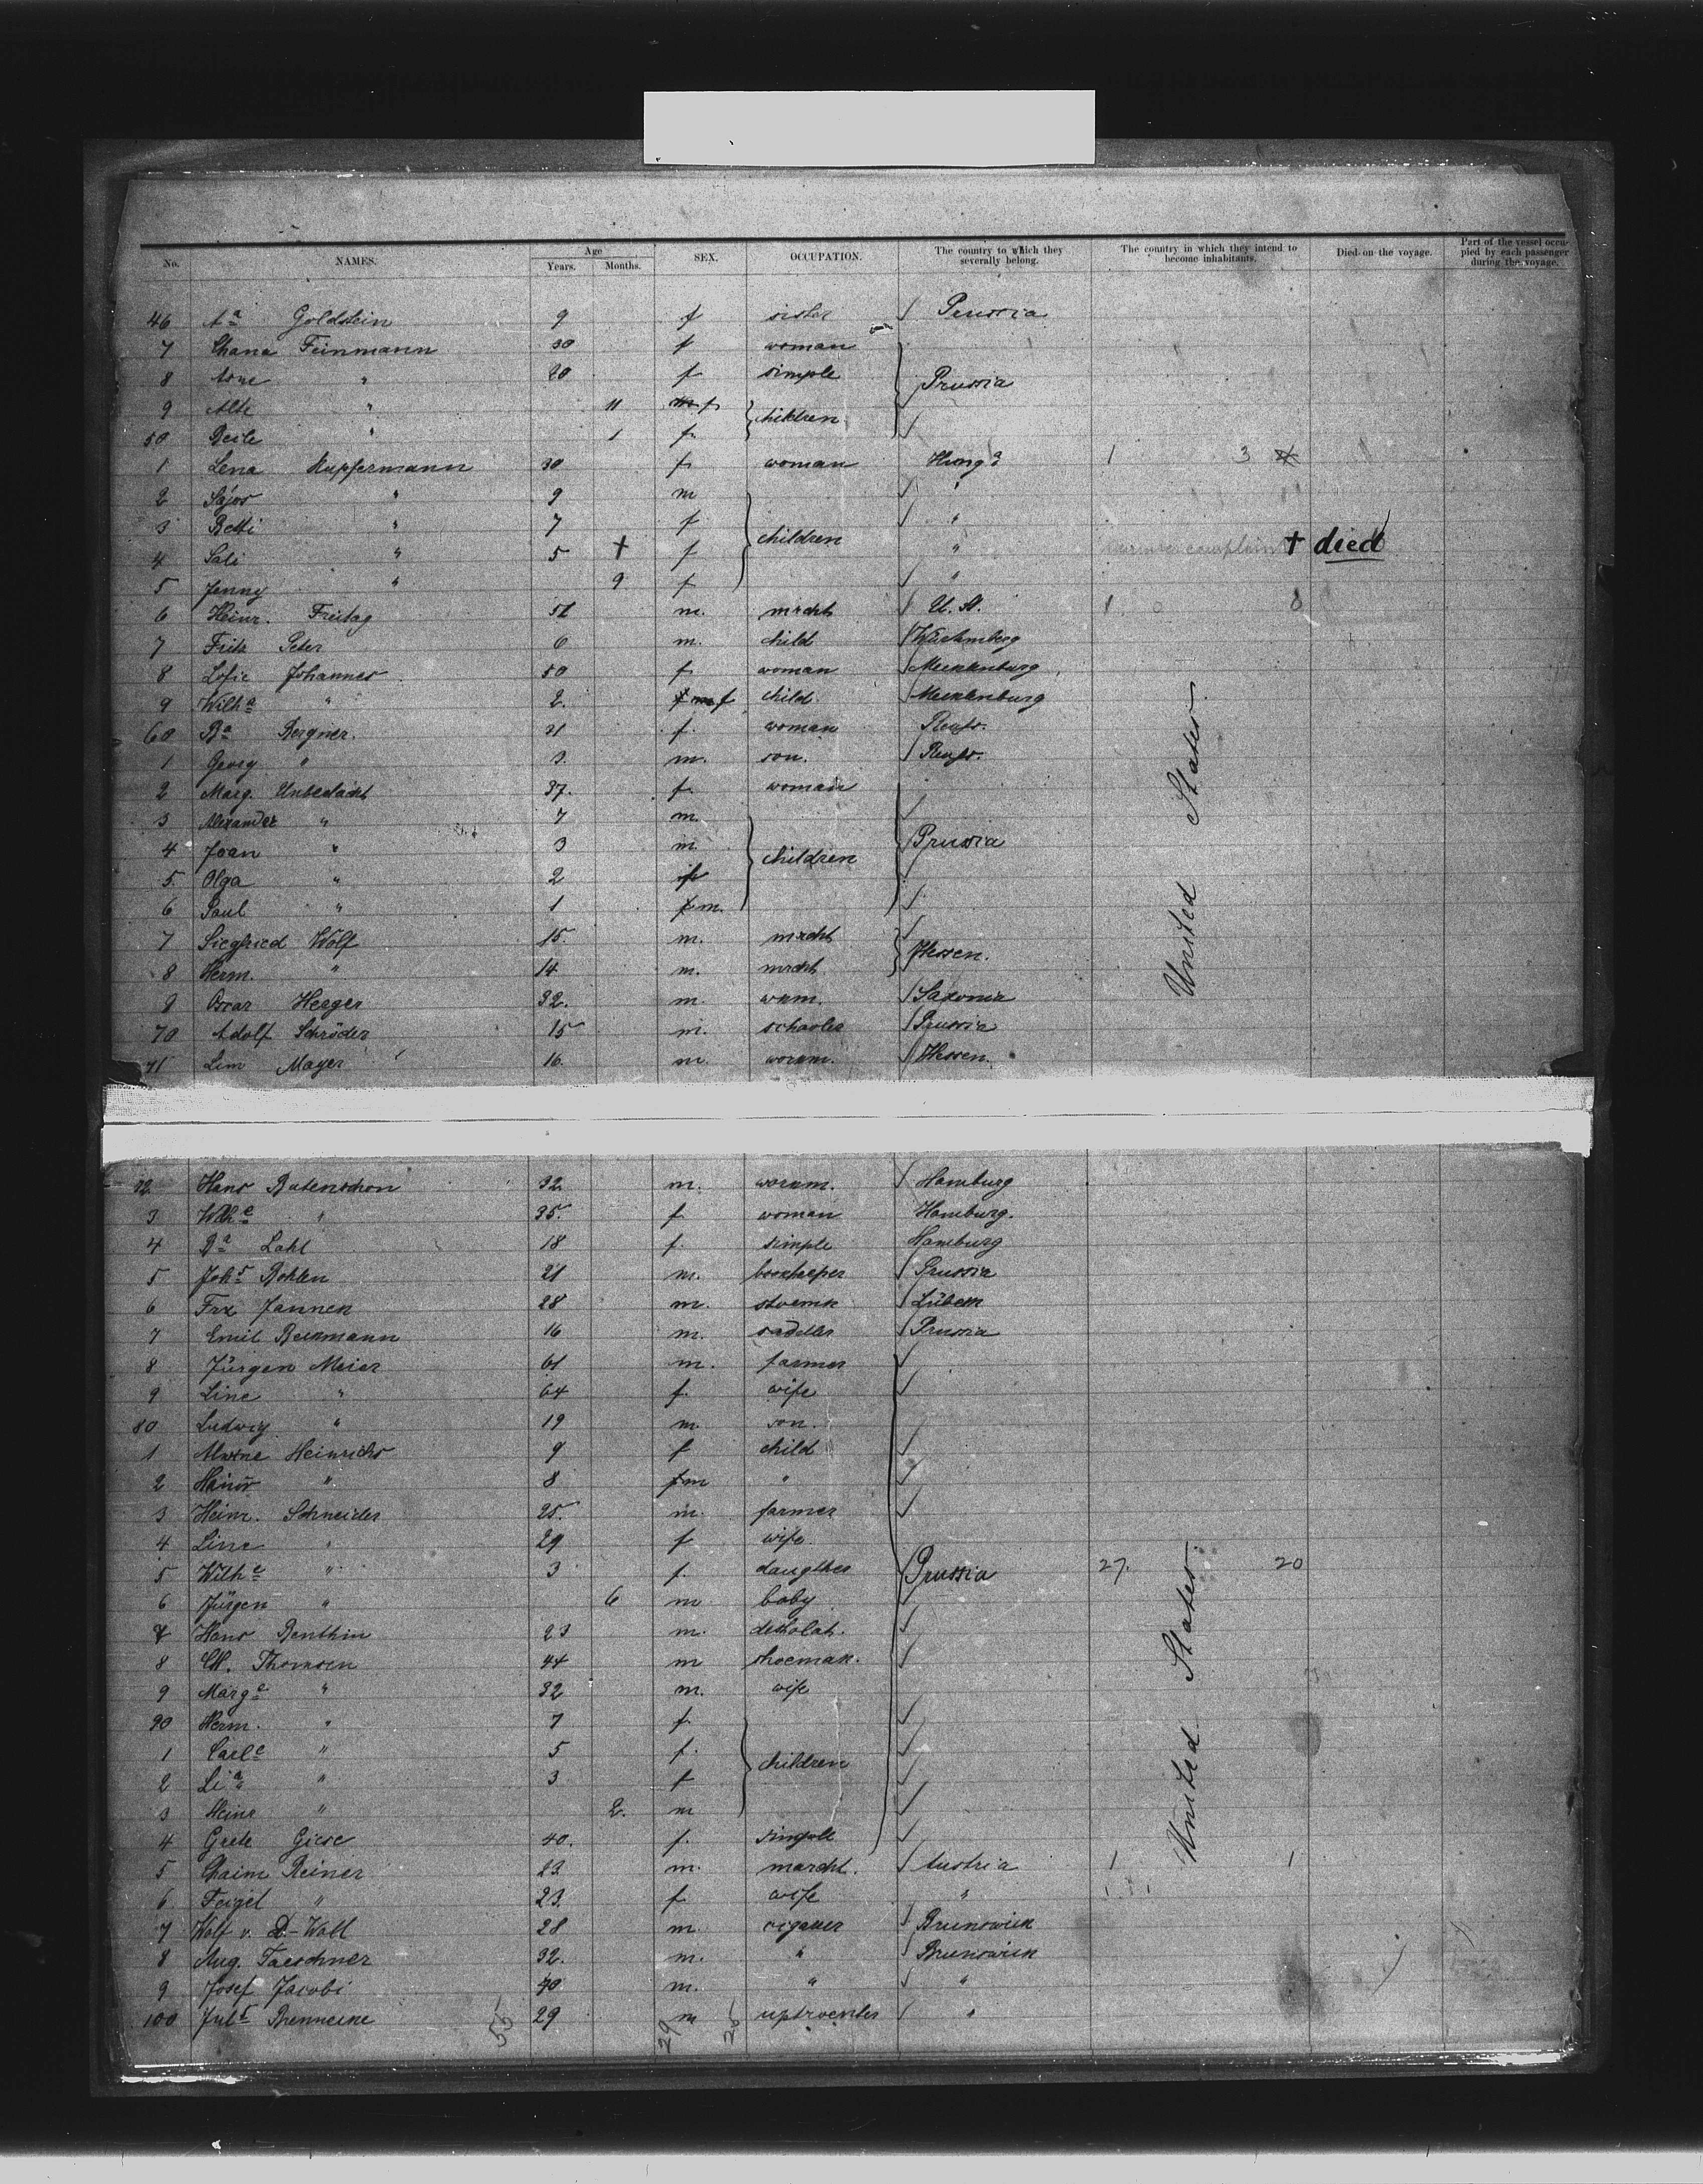 No. NAMES. Age Years. Months. SEX. OCCUPATION. The country to which they severally belong. The country in which they intend to become inhabitants. Died on the voyage. Part of the vessel occupied by each passenger during the voyage.
46 Aa Goldstein 9 f sister Prussia
7 Chana Feinmann 30 f woman
8 " 20 f simple Prussia
9 Alte " 11 f children
50 Beile " 1 f
1 Lena Kupfermann 30 f woman Hunga 1 3
2 Sajos " 9 m "
3 Betti " 7 f "
4 Sali " 5 + f children " complaint + died
5 Jenny " 9 f "
6 Heinr. Freitag 51 m. mrcht U. St. 1 0 8
7 Fritz Peter 6 m. child Würtemberg
8 Sofie Johannes 50 f woman Mecklenburg
9 Wilhe " 2. f child. Mecklenburg
60 Ba Bergner. 31 f. woman Reuss.
1 Georg " 3. m. son. Reuss.
2 Marg. Unbedacht 37. f. woman
3 Alexander " 7 m.
4 Joan " 3 m. Prussia
5 Olga " 2 f children
6 Paul " 1 m.
7 Siegfried Wolf 15. m. mrcht
8 Herm. " 14 m. mrcht Hessen.
9 Oscar Herger 32. m. wkm. Saxonia
70 Adolf Schröder 15 m. schooler Prussia
71 Lem Mayer 16. m. workm. Hessen.
United States
72 Hans Ratenschon 32 m. workm. Hamburg
3 Wilhe " 35. f woman Hamburg.
4 Ba Lahl 18 f. simple Hamburg
5 Johs Bohlen 21 m. bookheeper Prussia
6 Frz Jannek 28 m. stoemk Lübeck
7 Emil Beckmann 16 m. saddler Prussia
8 Jürgen Meier 61 m. farmer
9 Line " 64 f. wife
80 Ludwig " 19 m. son.
1 Heinrichs 9 f child
2 " 8 m "
3 Heinr. Schneider 25. m. farmer
4 Line " 29 f wife.
5 Wilhe " 3 f. daugther Prussia 27. 20
6 Jürgen " 6 m baby
7 Hans Benthin 23 m.
8 Thomsen 44 m shoemak.
9 Marge " 32 m. wife
90 Herm. " 7 f
1 Carle " 5 f. children
2 Lia " 3 f
3 Heinr " 2. m
4 Grete Giese 40. f. singole
5 Chaim Reiner 23. m. marcht. Austria 1 1
6 Feigel " 23. f wife " 1 1
7 Wolf v. D. Wall 28 m Brunswick
8 Aug. Taeschner 32. m. " Brunswick
9 Josef Jacobi 40 m. " "
100 Juls Brenneine 29 m "
United States
55 29 26